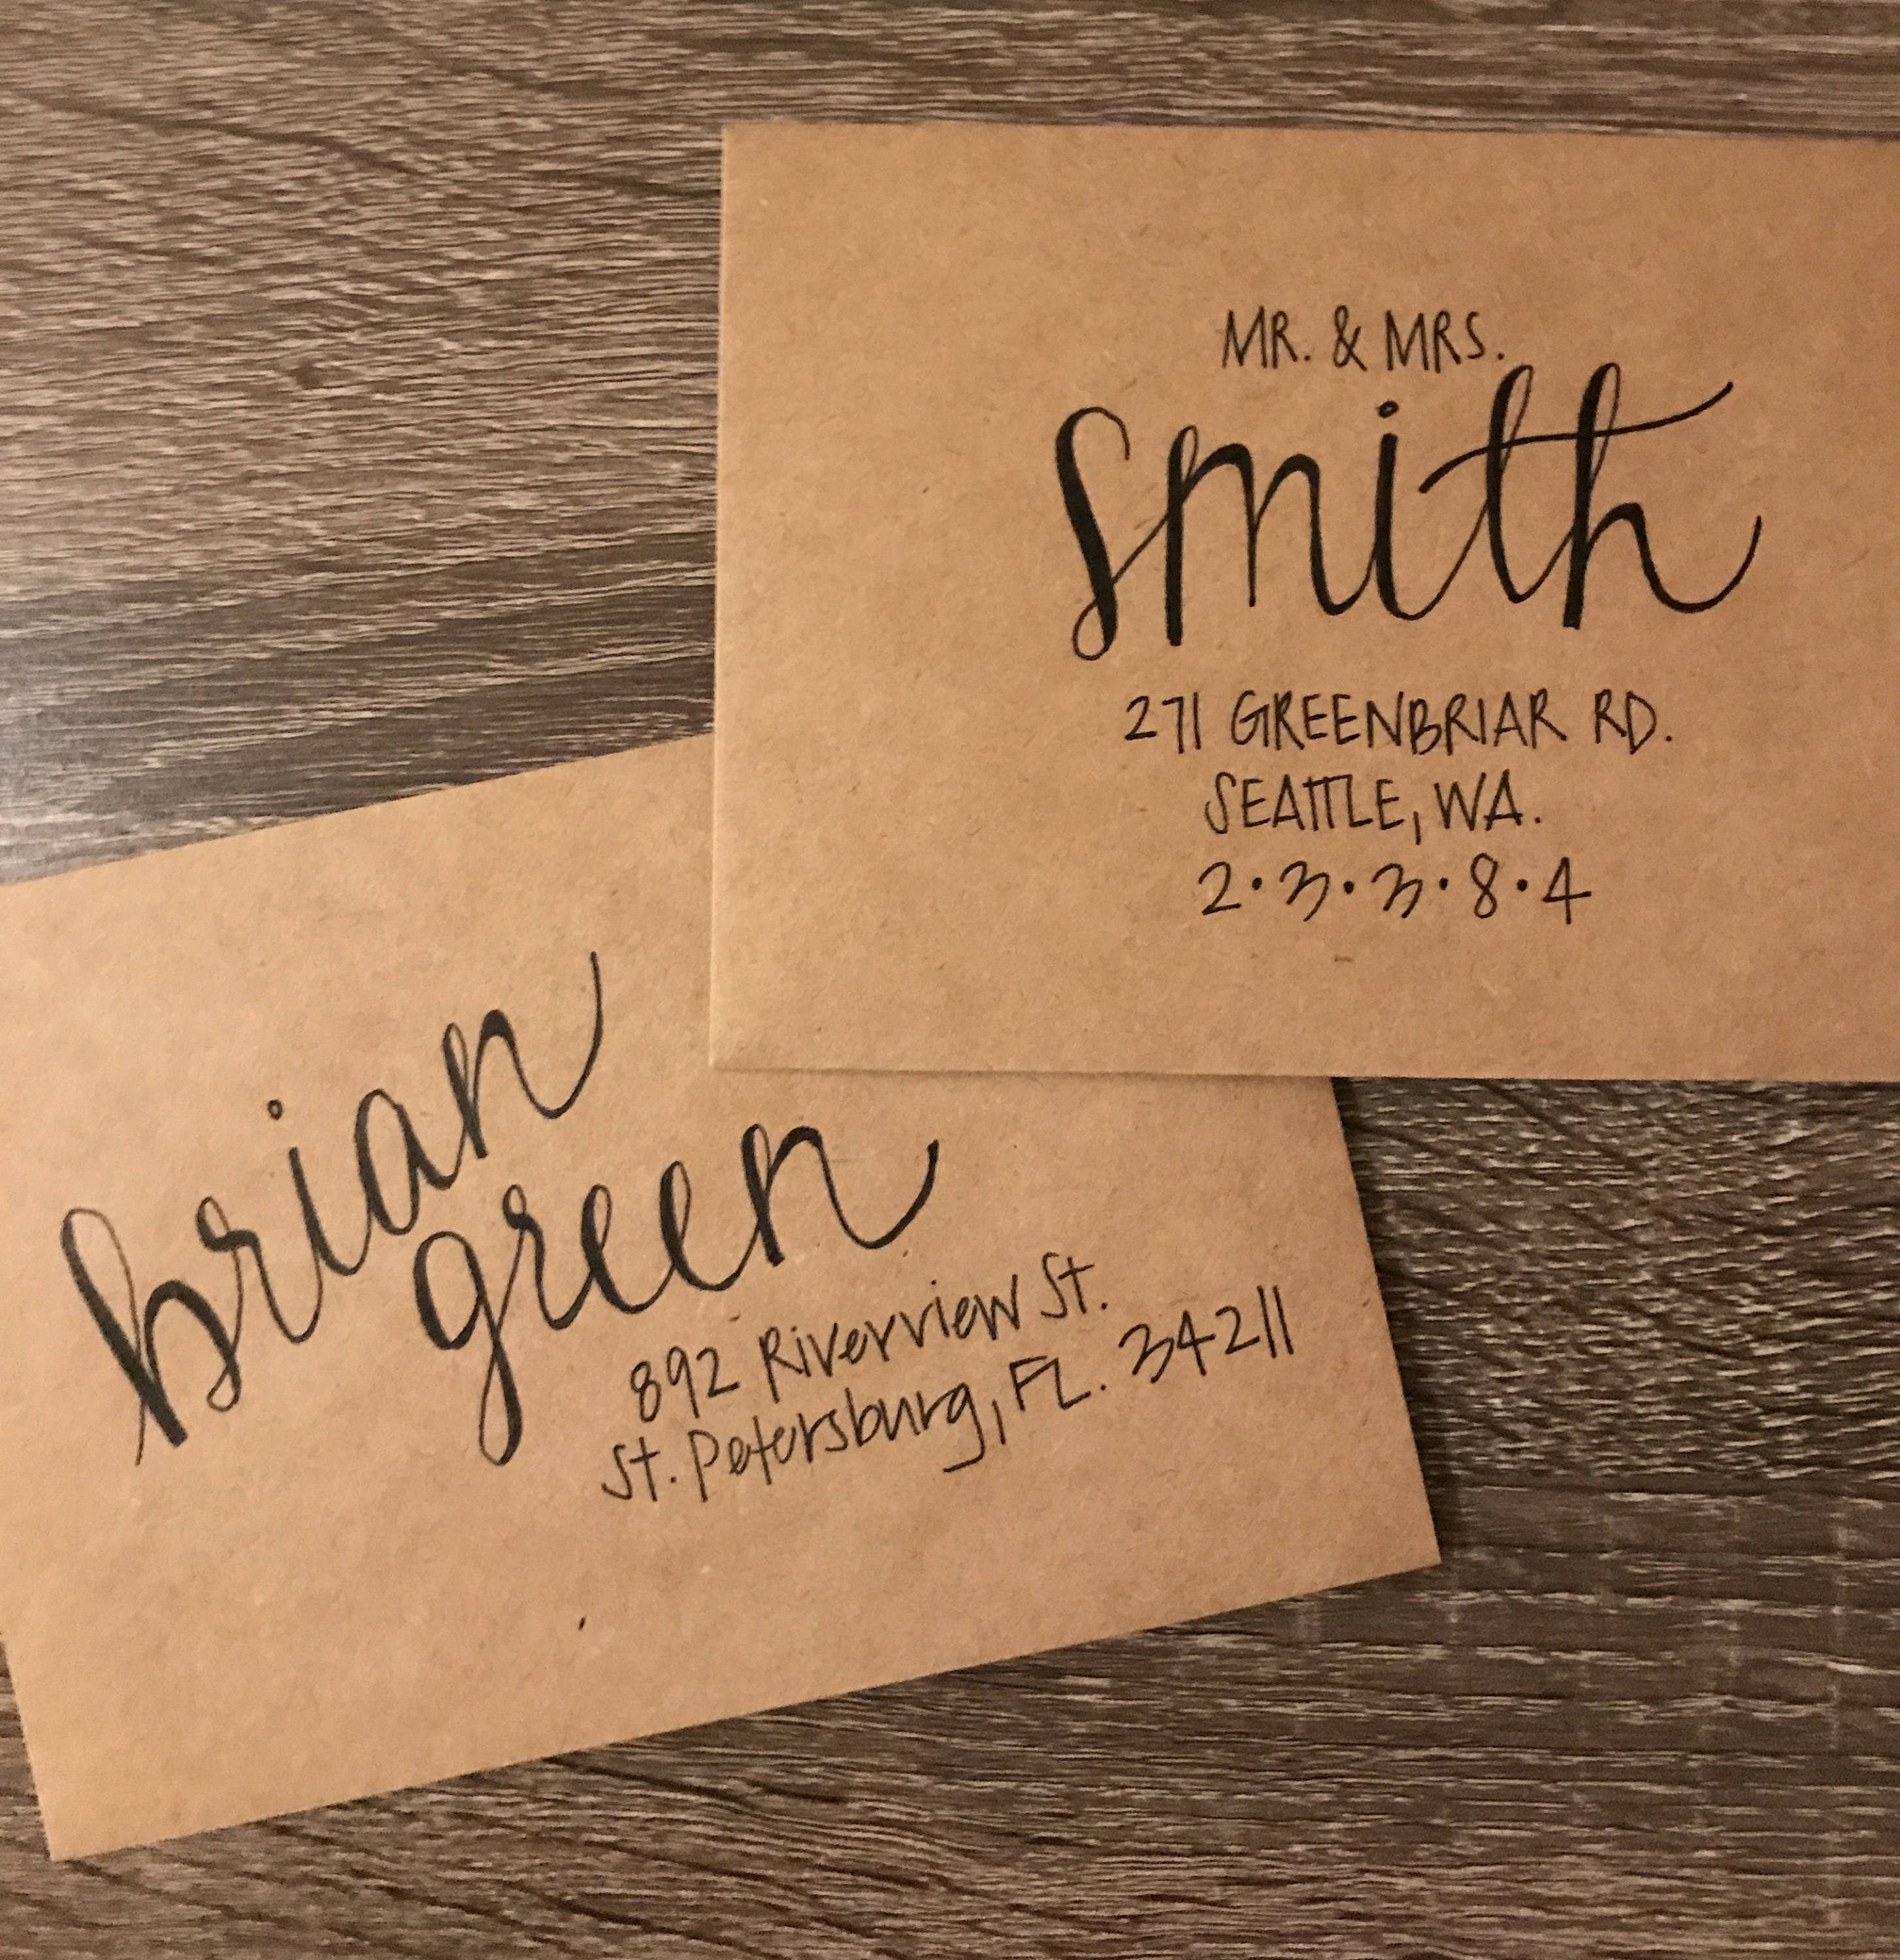 MR. & MRS.
smith
271 GREENBRIAR RD.
SEATTLE, WA.
2·3·3·8·4
brian
green
892 Riverview St.
St. Petersburg, FL. 34211